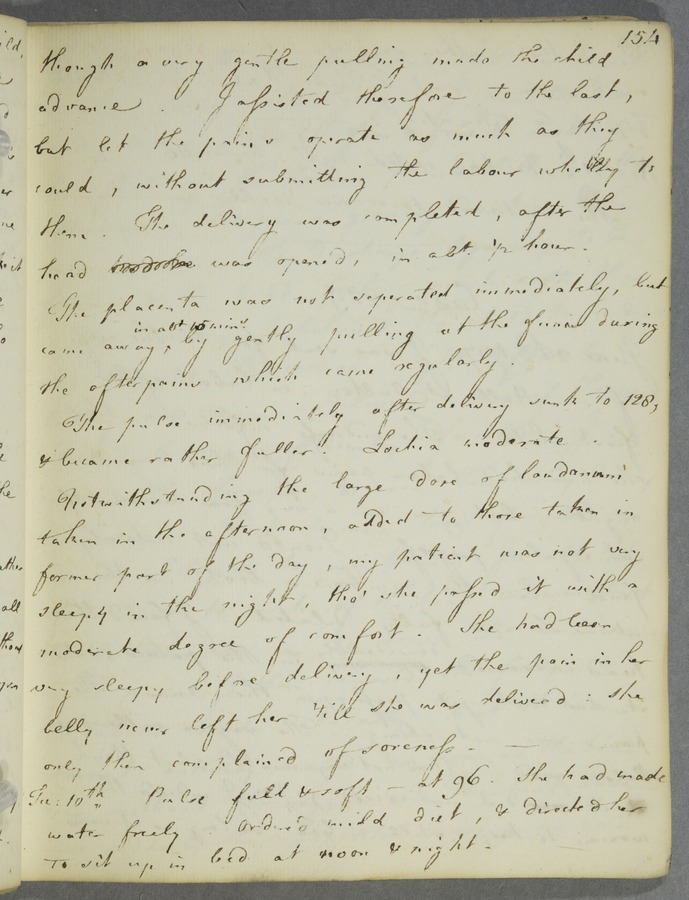 154
though a very gentle pulling made the child
advance. I assisted therefore to the last,
but let the pains operate as much as they
could, without submitting the labour wholly to
them. The delivery was completed, after the
head was opened, in abt. 1/2 hour.
The placenta was not seperated immediately, but
in abt 10 min:s
came away, by gently pulling at the funis during
the afterpains which came regularly.
The pulse immediately after delivery sunk to 128,
& became rather fuller. Lochia moderate.
Notwithstanding the large dose of laudanum
taken in the afternoon, added to those taken in
former part of the day, my patient was not very
sleepy in the night, tho' she passed it with a
moderate degree of comfort. She had been
very sleepy before delivery, yet the pain in her
belly never left her till she was delivered: she
only then complained of soreness. —
Tu: 10th Pulse full & soft – at 96. She had made
water freely. Order'd mild diet, & directed her
to sit up in bed at noon & night.